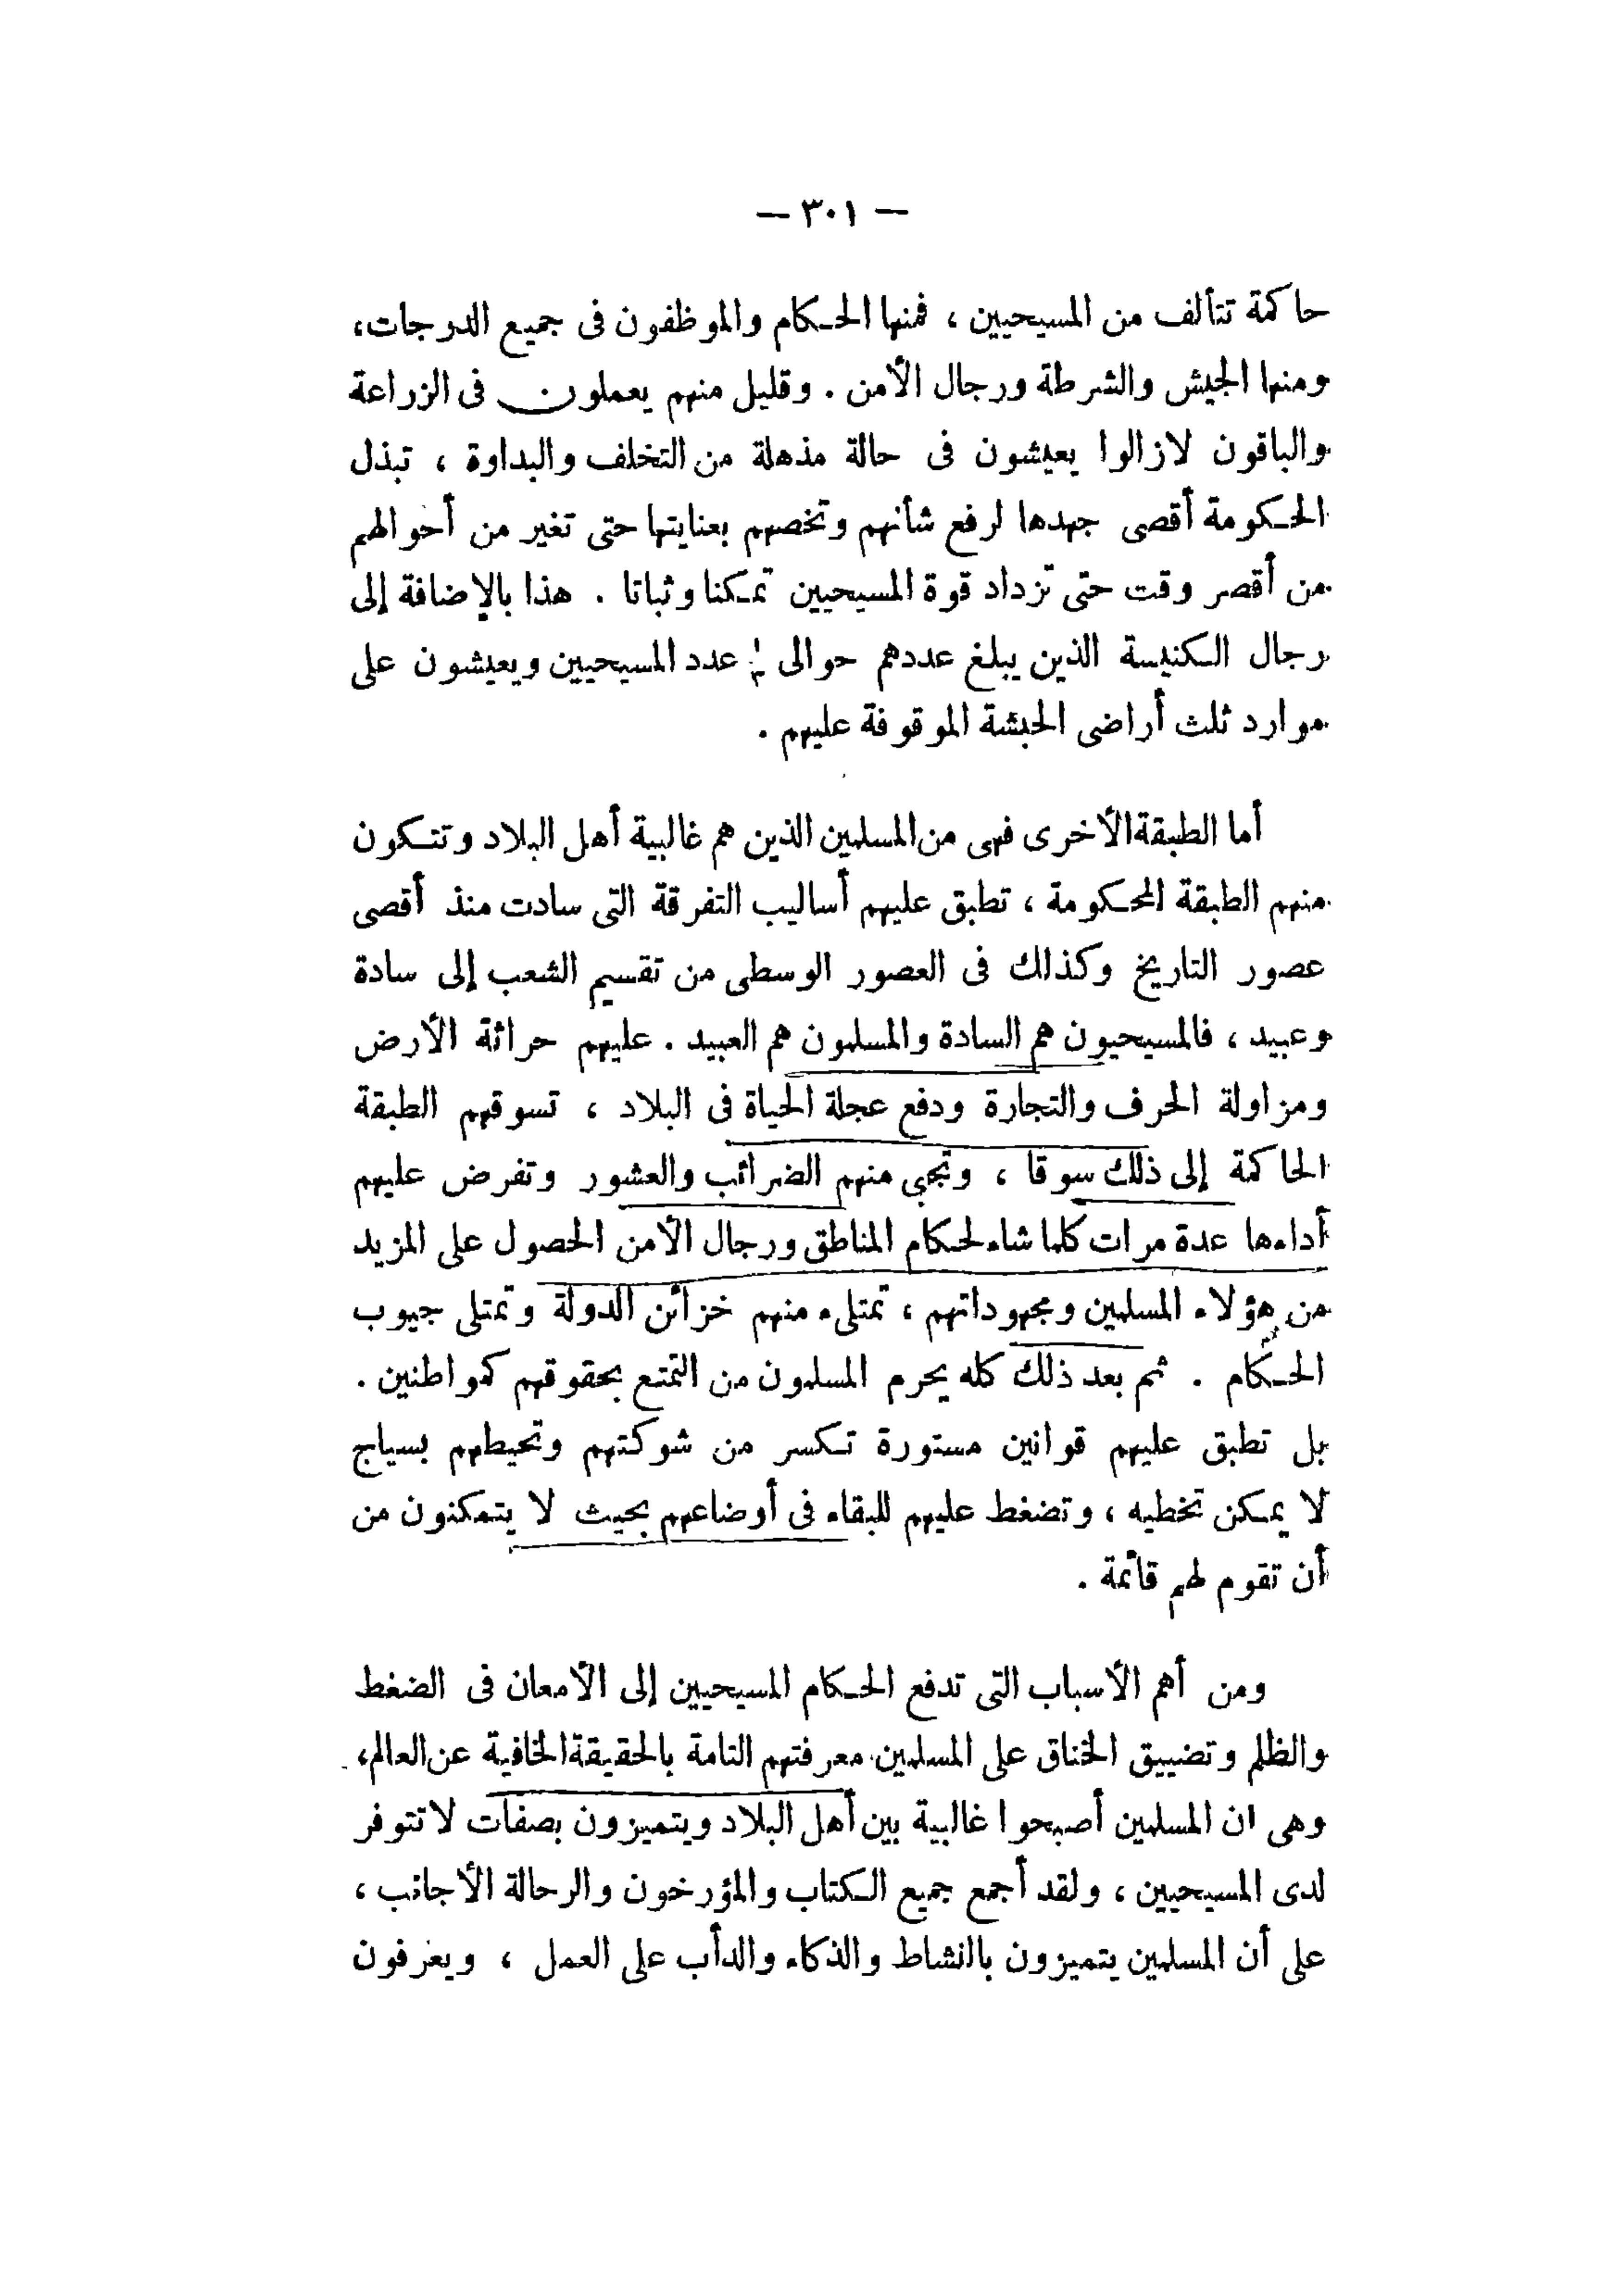 — ٣٠١ —
حاكمة تتألف من المسيحيين ، فمنها الحكام والموظفون فى جميع الدرجات،
ومنها الجيش والشرطة ورجال الأمن . وقليل منهم يعملون فى الزراعة
والباقون لازالوا يعيشون فى حالة مذهلة من التخلف والبداوة ، تبذل
الحكومة أقصى جهدها لرفع شأنهم وتخصهم بعنايتها حتى تغير من أحوالهم
من أقصر وقت حتى تزداد قوة المسيحيين تمكنا وثباتا . هذا بالإضافة إلى
رجال الكنيسة الذين يبلغ عددهم حوالى عدد المسيحيين ويعيشون على
موارد ثلث أراضى الحبشة الموقوفة عليهم .
أما الطبقة الأخرى فهى من المسلمين الذين هم غالبية أهل البلاد وتتكون
منهم الطبقة المحكومة ، تطبق عليهم أساليب التفرقة التى سادت منذ أقصى
عصور التاريخ وكذلك فى العصور الوسطى من تقسيم الشعب إلى سادة
وعبيد ، فالمسيحيون هم السادة والمسلمون هم العبيد . عليهم حراثة الأرض
ومزاولة الحرف والتجارة ودفع عجلة الحياة فى البلاد ، تسوقهم الطبقة
الحاكمة إلى ذلك سوقا ، وتجبى منهم الضرائب والعشور وتفرض عليهم
أداءها عدة مرات كلما شاء لحكام المناطق ورجال الأمن الحصول على المزيد
من هؤلاء المسلمين ومجهوداتهم ، تمتلىء منهم خزائن الدولة وتمتلى جيوب
الحكام . ثم بعد ذلك كله يحرم المسلمون من التمتع بحقوقهم كمواطنين .
بل تطبق عليهم قوانين مستورة تكسر من شوكتهم وتحيطهم بسياج
لا يمكن تخطيه ، وتضغط عليهم للبقاء فى أوضاعهم بحيث لا يتمكنون من
أن تقوم لهم قائمة .
ومن أهم الأسباب التى تدفع الحكام المسيحيين إلى الأمعان فى الضغط
والظلم وتضييق الخناق على المسلمين معرفتهم التامة بالحقيقة الخافية عن العالم،
وهى ان المسلمين أصبحوا غالبية بين أهل البلاد ويتميزون بصفات لا تتوفر
لدى المسيحيين ، ولقد أجمع جميع الكتاب والمؤرخون والرحالة الأجانب ،
على أن المسلمين يتميزون بالنشاط والذكاء والدأب على العمل ، ويعرفون